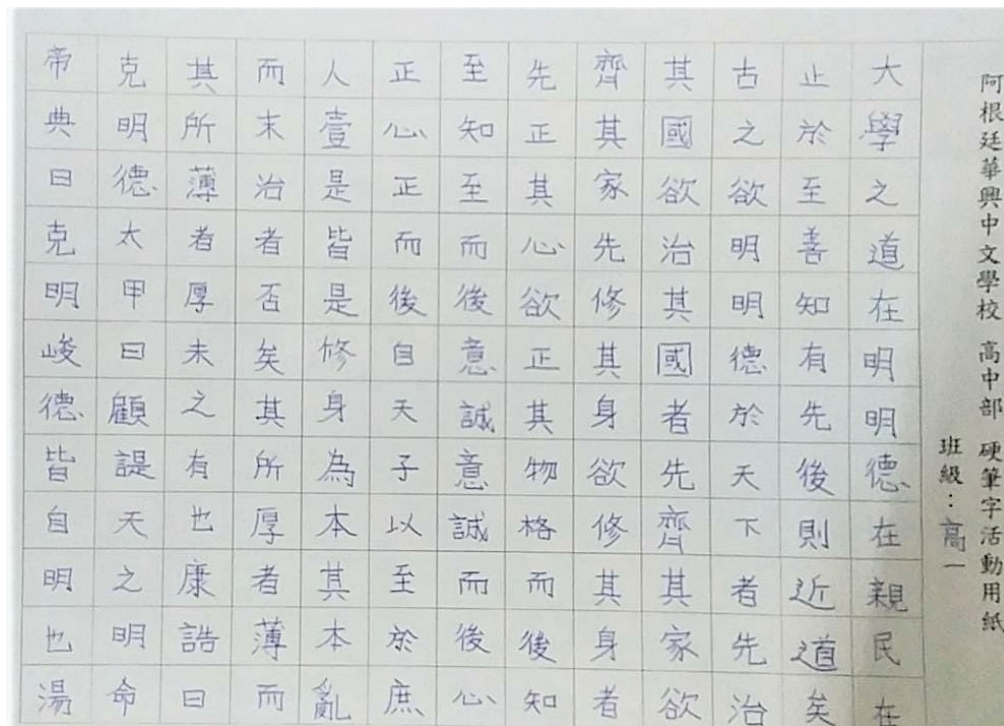 阿根廷華興中文學校 高中部 硬筆字活動用紙
班級：高一
大學之道在明明德在親民在
止於至善知有先後則近道矣
古之欲明明德於天下者先治
其國欲治其國者先齊其家欲
齊其家先修其身欲修其身者
先正其心欲正其物格而後知
至知至而後意誠意誠而後心
正心正而後自天子以至於庶
人壹是皆是修身為本其本亂
而末治者否矣其所厚者薄而
其所薄者厚未之有也康誥曰
克明德太甲曰顧諟天之明命
帝典曰克明峻德皆自明也湯